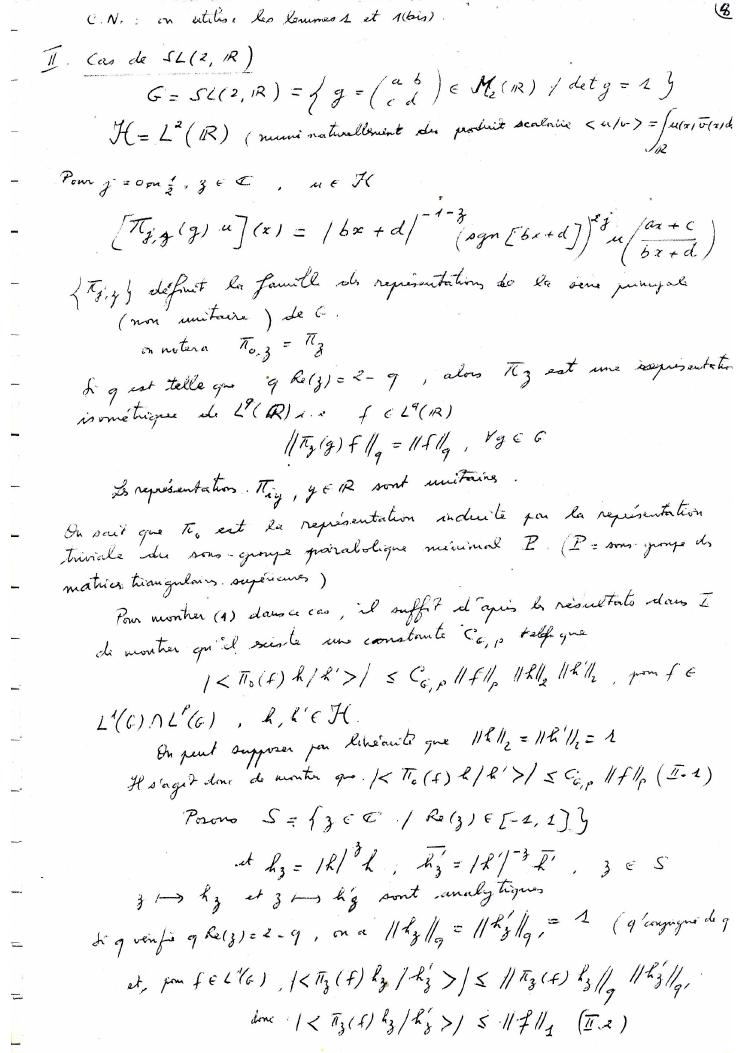 8
C.N. : on utilise les lemmes 1 et 1(bis).
II. Cas de SL(2, IR)
G = SL(2, IR) = { g = (a b / c d) ∈ M₂(IR) / det g = 1 }
H = L²(IR) (muni naturellement du produit scalaire <u/v> = ∫_IR u(x) v̄(x) d
Pour j = 0 ou 1/2, z ∈ C, u ∈ H
[π_{j,z}(g) u](x) = |bx+d|^{-1-z} (sgn[bx+d])^{2j} u((ax+c)/(bx+d))
{π_{j,z}} définit la famille des représentations de la série principale
(non unitaire) de G.
on notera π_{0,z} = π_z
Si q est telle que q Re(z) = 2-q, alors π_z est une représentation
isométrique de L^q(IR) i.e f ∈ L^q(IR)
||π_z(g) f||_q = ||f||_q, ∀g ∈ G
Les représentations π_{iy}, y ∈ IR sont unitaires.
On sait que π_0 est la représentation induite par la représentation
triviale du sous-groupe parabolique minimal P. (P = sous-groupe des
matrices triangulaires supérieures)
Pour montrer (1) dans ce cas, il suffit d'après les résultats dans I
de montrer qu'il existe une constante C_{G,p} telle que
|<π_0(f) h/h'>| ≤ C_{G,p} ||f||_p ||h||_2 ||h'||_2, pour f ∈
L¹(G) ∩ L^p(G), h, h' ∈ H.
On peut supposer par linéarité que ||h||_2 = ||h'||_2 = 1
Il s'agit donc de montrer que |<π_0(f) h/h'>| ≤ C_{G,p} ||f||_p (II.1)
Posons S = {z ∈ C / Re(z) ∈ [-1, 1]}
et h_z = |h|^z h, h̄'_z = |h'|^{-z} h̄', z ∈ S
z ↦ h_z et z ↦ h'_z sont analytiques
Si q vérifie q Re(z) = 2-q, on a ||h_z||_q = ||h'_z||_{q'} = 1 (q' conjugué de q
et, pour f ∈ L¹(G), |<π_z(f) h_z / h'_z>| ≤ ||π_z(f) h_z||_q ||h'_z||_{q'}
donc |<π_z(f) h_z / h'_z>| ≤ ||f||_1 (II.2)